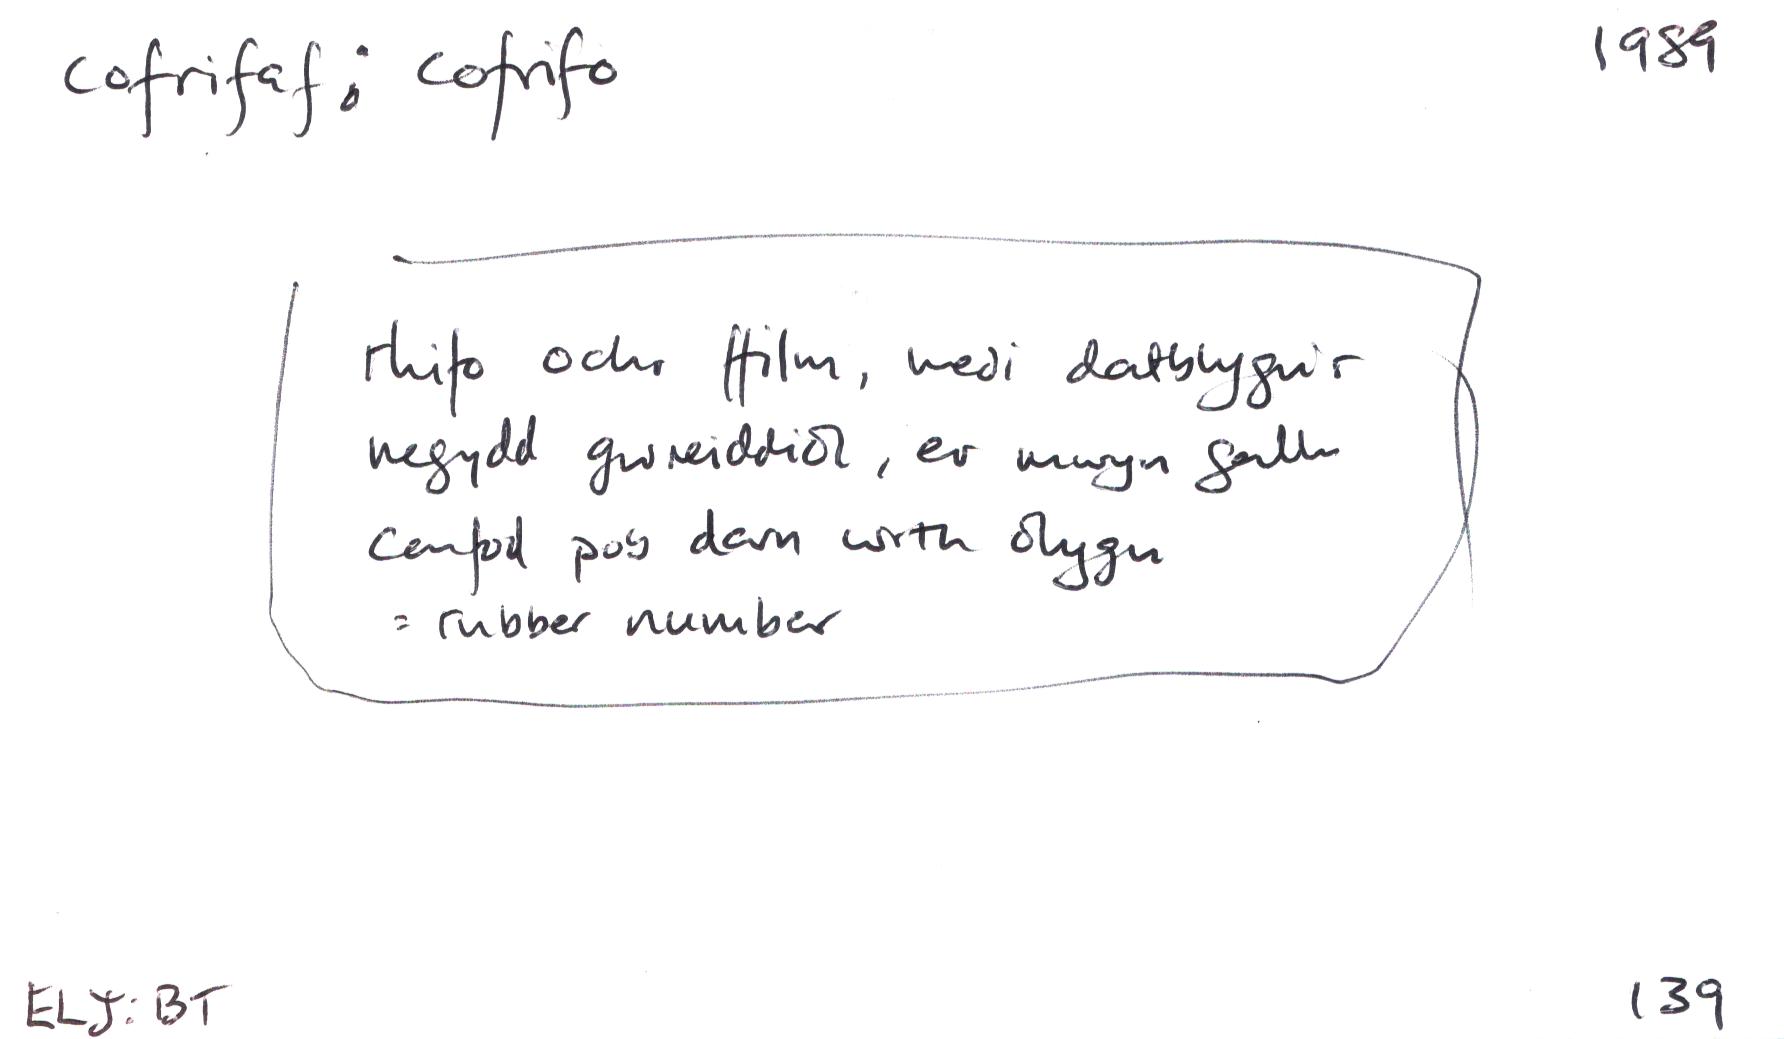 cofrifaf: cofrifo 1989
rhifo ochr ffilm, wedi datblygu'r
negydd gwreiddiol, er mwyn gallu
canfod pob darn wrth olygu
= rubber number
ELJ: BT 139